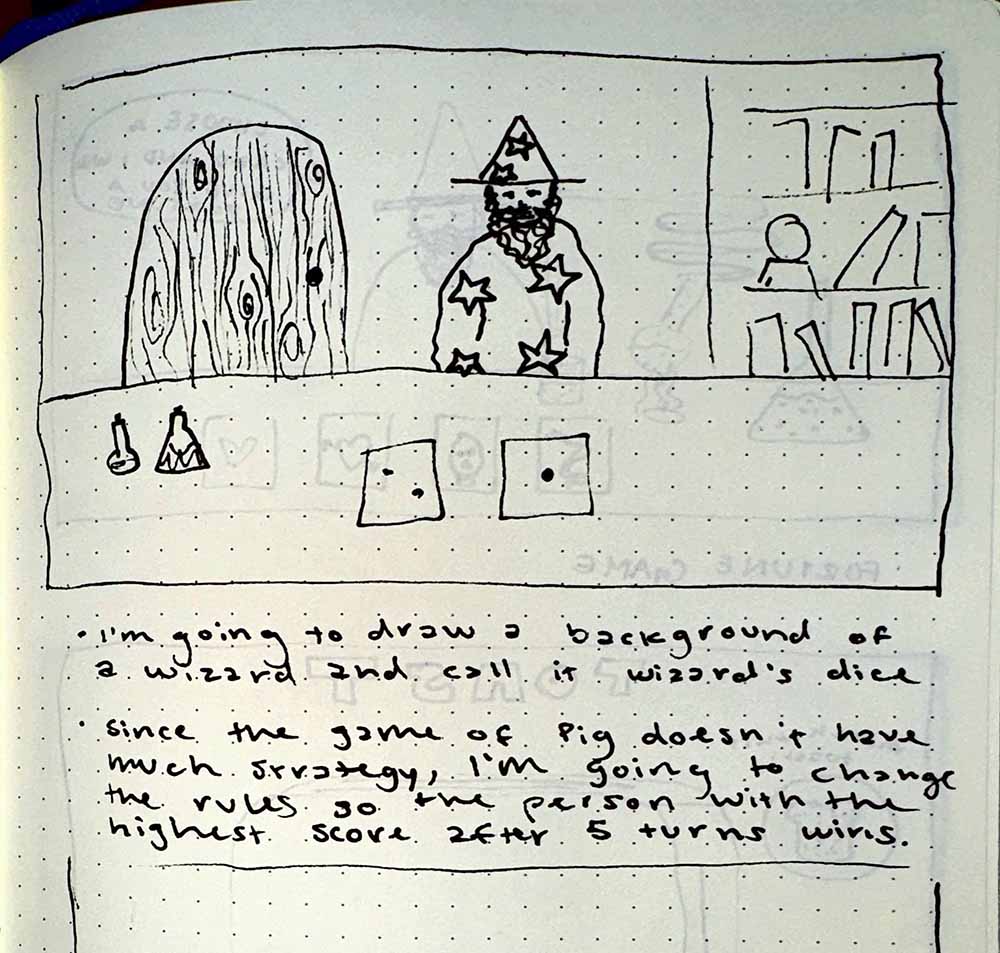 • I'm going to draw a background of
a wizard and call it wizard's dice
• since the game of Pig doesn't have
much strategy, I'm going to change
the rules so the person with the
highest score after 5 turns wins.
FORTUNE GAME